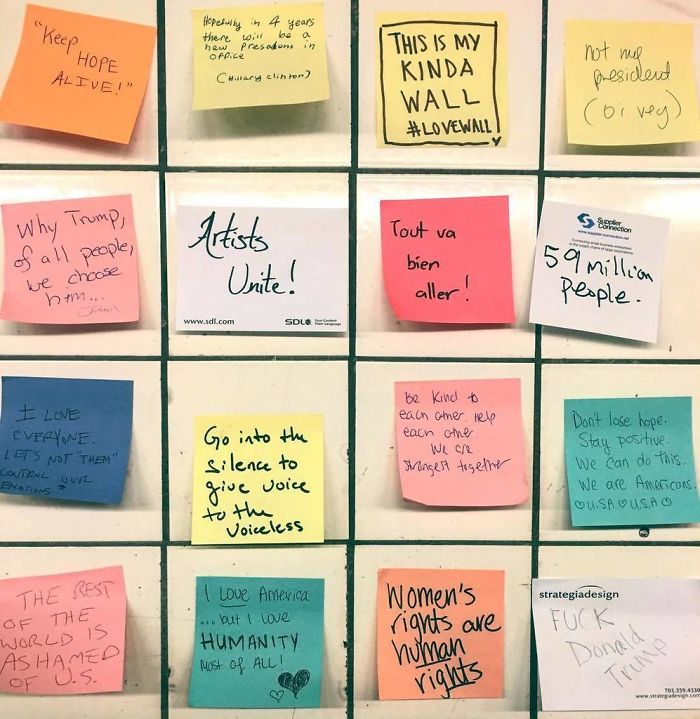 "Keep
HOPE
ALIVE!"
Hopefully in 4 years
there will be a
new President in
office
(Hillary Clinton)
THIS IS MY
KINDA
WALL
#LOVEWALL!
not my
president
(oi vey)
Why Trump,
of all people,
we choose
him...
Artists
Unite!
www.sdl.com
SDL
Your Content
Their Language
Tout va
bien
aller!
Supplier
Connection
www.supplier-connection.net
59 million
People.
I LOVE
EVERYONE.
LET'S NOT "THEM"
CONTROL OUR
EMOTIONS
Go into the
silence to
give voice
to the
voiceless
Be kind to
each other. Help
each other.
We are
strongest together
Don't lose hope.
Stay positive.
We can do this.
We are Americans.
U.S.A U.S.A
THE REST
OF THE
WORLD IS
ASHAMED
OF U.S.
I LOVE America
...but I love
HUMANITY
MOST OF ALL!
Women's
rights are
human
rights
strategiadesign
FUCK
Donald
Trump
703.359.4330
www.strategiadesign.com